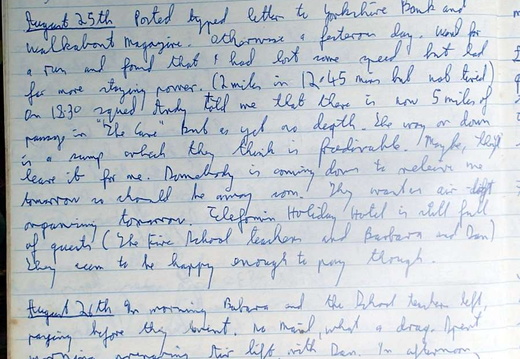 August 25th Posted typed letter to Yorkshire Bank and
Walkabout Magazine. Otherwise a day. Went for
a run and found that I had lost some speed but had
far more staying power. (2 miles in 12:45 mins but not tired)
On 18:30 sched Andy told me that there is now 5 miles of
passage in "The Cave" but as yet no depth. The way on down
is a sump which they think is freediveable. Maybe, they'll
leave it for me. Somebody is coming down to relieve me
tomorrow so should be away soon. They want an air lift
organising tomorrow. Telefomin Holiday Hotel is still full
of guests (The Five School teachers and Barbara and Dan)
They seem to be happy enough to pay though.
August 26th In morning Barbara and the School teachers left,
paying before they went. No mail, what a drag. Spent
morning air lift with Dan. In afternoon